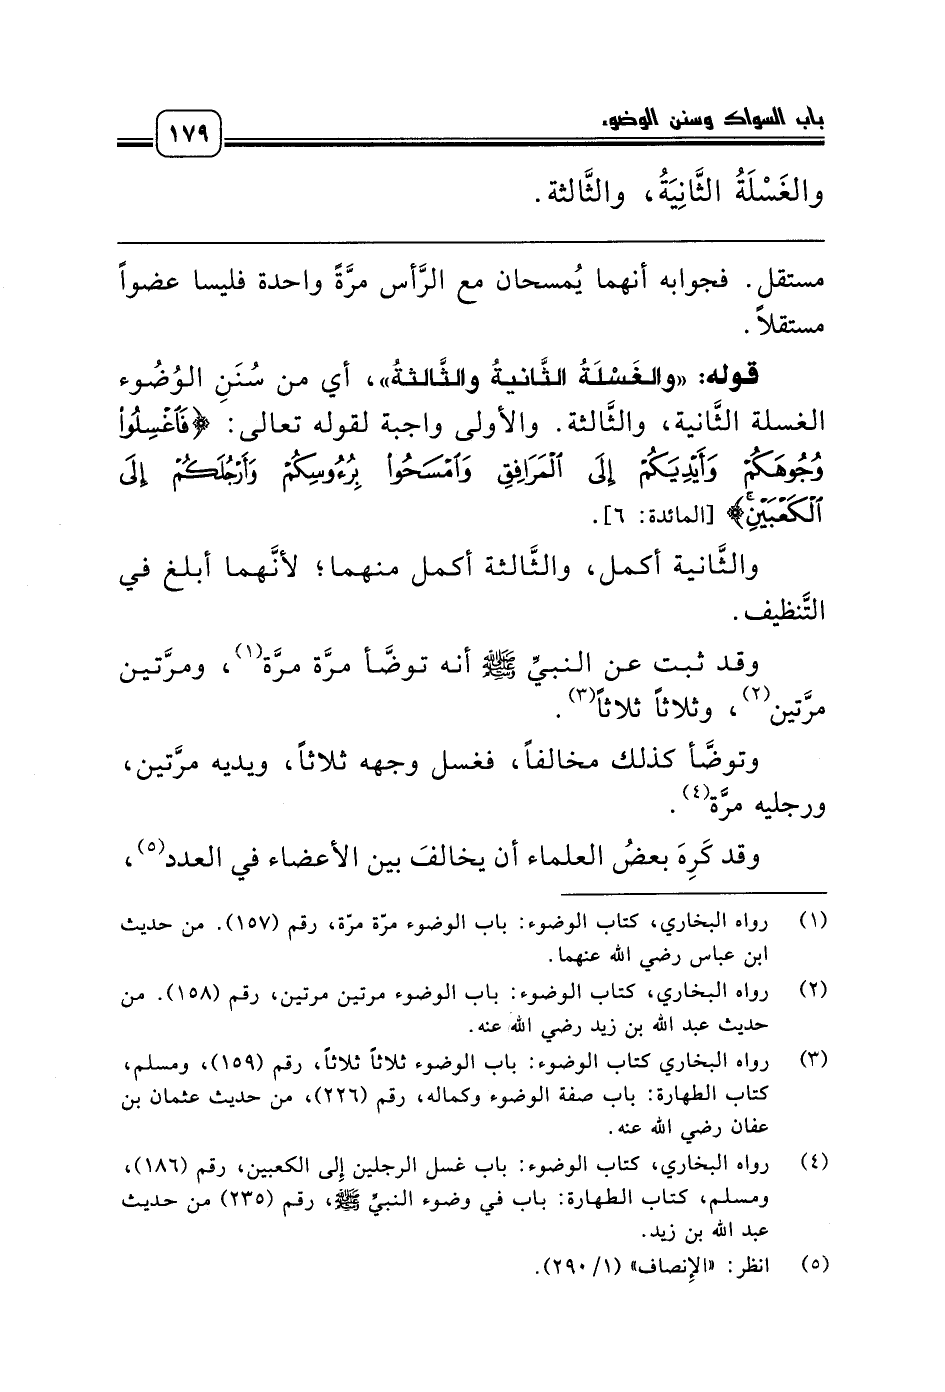 باب السواك وسنن الوضوء
١٧٩
والغَسْلَةُ الثَّانِيَةُ، والثَّالثة.
مستقل. فجوابه أنهما يُمسحان مع الرَّأس مرَّةً واحدة فليسا عضواً
مستقلاً.
قوله: «والغَسْلَةُ الثَّانيةُ والثَّالثةُ»، أي من سُنَنِ الوُضُوء
الغسلة الثَّانية، والثَّالثة. والأولى واجبة لقوله تعالى: ﴿فَٱغْسِلُوا۟
وُجُوهَكُمْ وَأَيْدِيَكُمْ إِلَى ٱلْمَرَافِقِ وَٱمْسَحُوا۟ بِرُءُوسِكُمْ وَأَرْجُلَكُمْ إِلَى
ٱلْكَعْبَيْنِۚ﴾ [المائدة: ٦].
والثَّانية أكمل، والثَّالثة أكمل منهما؛ لأنَّهما أبلغ في
التَّنظيف.
وقد ثبت عن النبيِّ ﷺ أنه توضَّأ مرَّة مرَّة(١)، ومرَّتين
مرَّتين(٢)، وثلاثاً ثلاثاً(٣).
وتوضَّأ كذلك مخالفاً، فغسل وجهه ثلاثاً، ويديه مرَّتين،
ورجليه مرَّة(٤).
وقد كَرِهَ بعضُ العلماء أن يخالفَ بين الأعضاء في العدد(٥)،
(١) رواه البخاري، كتاب الوضوء: باب الوضوء مرّة مرّة، رقم (١٥٧). من حديث
ابن عباس رضي الله عنهما.
(٢) رواه البخاري، كتاب الوضوء: باب الوضوء مرتين مرتين، رقم (١٥٨). من
حديث عبد الله بن زيد رضي الله عنه.
(٣) رواه البخاري كتاب الوضوء: باب الوضوء ثلاثاً ثلاثاً، رقم (١٥٩)، ومسلم،
كتاب الطهارة: باب صفة الوضوء وكماله، رقم (٢٢٦)، من حديث عثمان بن
عفان رضي الله عنه.
(٤) رواه البخاري، كتاب الوضوء: باب غسل الرجلين إلى الكعبين، رقم (١٨٦)،
ومسلم، كتاب الطهارة: باب في وضوء النبيِّ ﷺ، رقم (٢٣٥) من حديث
عبد الله بن زيد.
(٥) انظر: «الإنصاف» (١/ ٢٩٠).